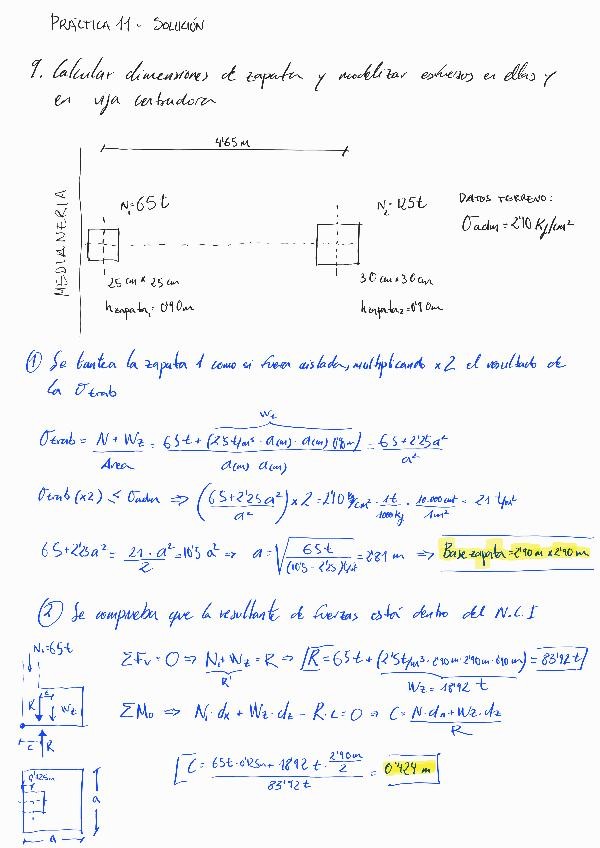 PRÁCTICA 11 - SOLUCIÓN
9. Calcular dimensiones de zapata y modelizar esfuerzos en ellas y
en viga centradora
4'65 m
MEDIANERIA
N₁=65t
N₂=125t
DATOS TERRENO:
σadm = 2'10 Kg/cm²
25 cm × 25 cm
30 cm × 30 cm
hzapata₁ = 0'90m
hzapata₂ = 0'90m
① Se tantea la zapata 1 como si fuera aislada, multiplicando ×2 el resultado de
la σtrab
Wz
σtrab = N + Wz / Area = 65t + (2'5t/m³ · a(m) · a(m) · 0'9m) / a(m) · a(m) = 65 + 2'25a² / a²
σtrab (×2) ≤ σadm ⇒ (65+2'25a² / a²) × 2 = 2'10 Kg/cm² · 1t/1000kg · 10.000cm²/1m² = 21 t/m²
65+2'25a² = 21·a²/2 = 10'5 a² ⇒ a = √65t/(10'5 - 2'25)t/m² = 2'81 m ⇒ Base zapata = 2'90 m × 2'90 m
② Se comprueba que la resultante de fuerzas está dentro del N.C.I
N₁=65t
ΣFv = 0 ⇒ N₁+Wz = R ⇒ R = 65t + (2'5t/m³ · 2'90m · 2'90m · 0'90m) = 83'92 t
R'
Wz = 18'92 t
R' Wz
ΣM₀ ⇒ N₁·dN + Wz·dz - R·C = 0 ⇒ C = N·dN + Wz·dz / R
C R
C = 65t · 0'125m + 18'92 t · 2'90m/2 / 83'92 t = 0'424 m
0'125m
a
a